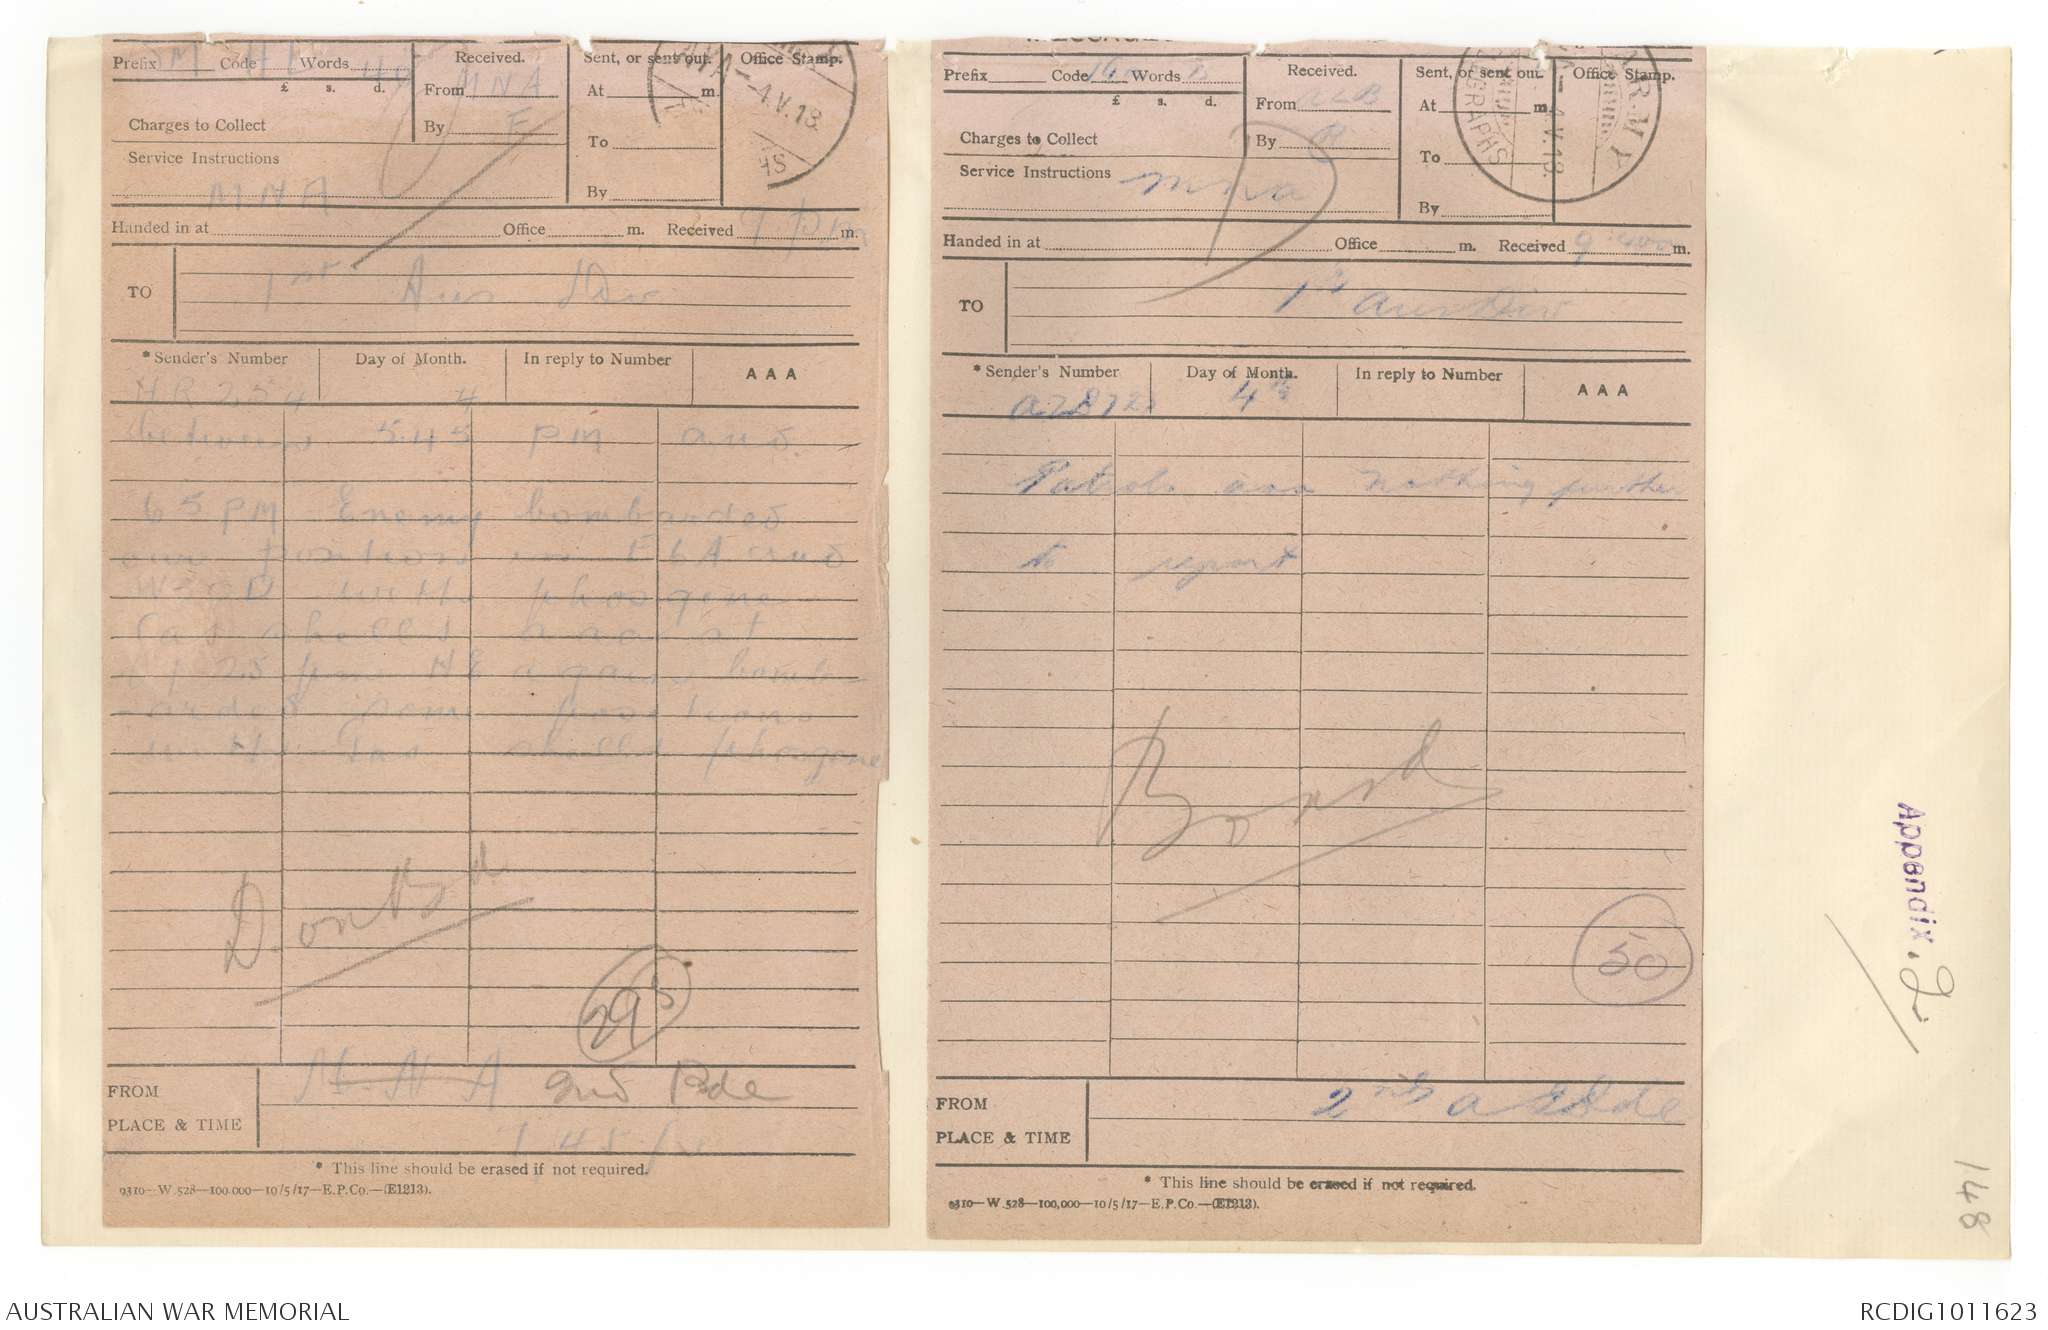 Prefix M Code HL Words 40
£ s. d.
Charges to Collect
Service Instructions
MNA
Received.
From MNA
By E
Sent, or sent out.
At m.
To
By
Office Stamp.
4.V.18.
Handed in at Office m. Received 9 pm m.
TO
1st Aus Div
*Sender's Number Day of Month. In reply to Number AAA
HR 254 4
between 5.45 PM and
6 5 PM Enemy bombarded
our positions in E 6 A and
with phosgene
Gas shells aaa at
7 25 pm HE again bomb
arded same positions
with Gas shells phosgene
D. on Bd
295
FROM
PLACE & TIME
MNA 2nd Bde
7 45 p
* This line should be erased if not required.
9310—W.528—100,000—10/5/17—E.P.Co.—(E1213).
Prefix Code Words
£ s. d.
Charges to Collect
Service Instructions
mna
Received.
From
By
Sent, or sent out.
At m.
To
By
Office Stamp.
ARMY
TELEGRAPHS
4.V.18.
Handed in at Office m. Received 9.40 m.
TO
1st Aus Div
*Sender's Number Day of Month. In reply to Number AAA
4th
Patrols aaa Nothing further
to report
Board
50
FROM
PLACE & TIME
2nd A Bde
* This line should be erased if not required.
9310—W.528—100,000—10/5/17—E.P.Co.—(E1213).
Appendix. 2
148
AUSTRALIAN WAR MEMORIAL
RCDIG1011623